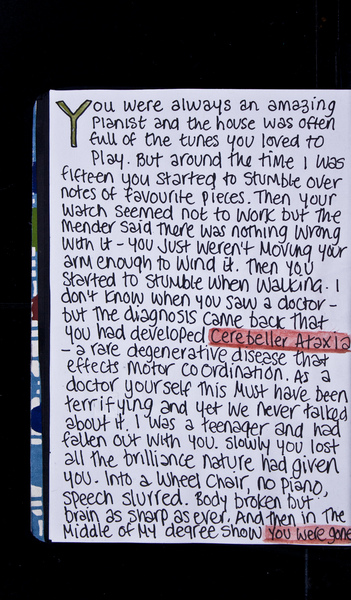 You were always an amazing
pianist and the house was often
full of the tunes you loved to
play. But around the time I was
fifteen you started to stumble over
notes of favourite pieces. Then your
watch seemed not to work but the
mender said there was nothing wrong
with it - you just weren't moving your
arm enough to wind it. Then you
started to stumble when walking. I
don't know when you saw a doctor -
but the diagnosis came back that
you had developed Cerebeller Ataxia
- a rare degenerative disease that
effects motor coordination. As a
doctor yourself this must have been
terrifying and yet we never talked
about it. I was a teenager and had
fallen out with you. Slowly you lost
all the brilliance nature had given
you. Into a wheel chair, no piano,
speech slurred. Body broken but
brain as sharp as ever. And then in the
middle of my degree show you were gone